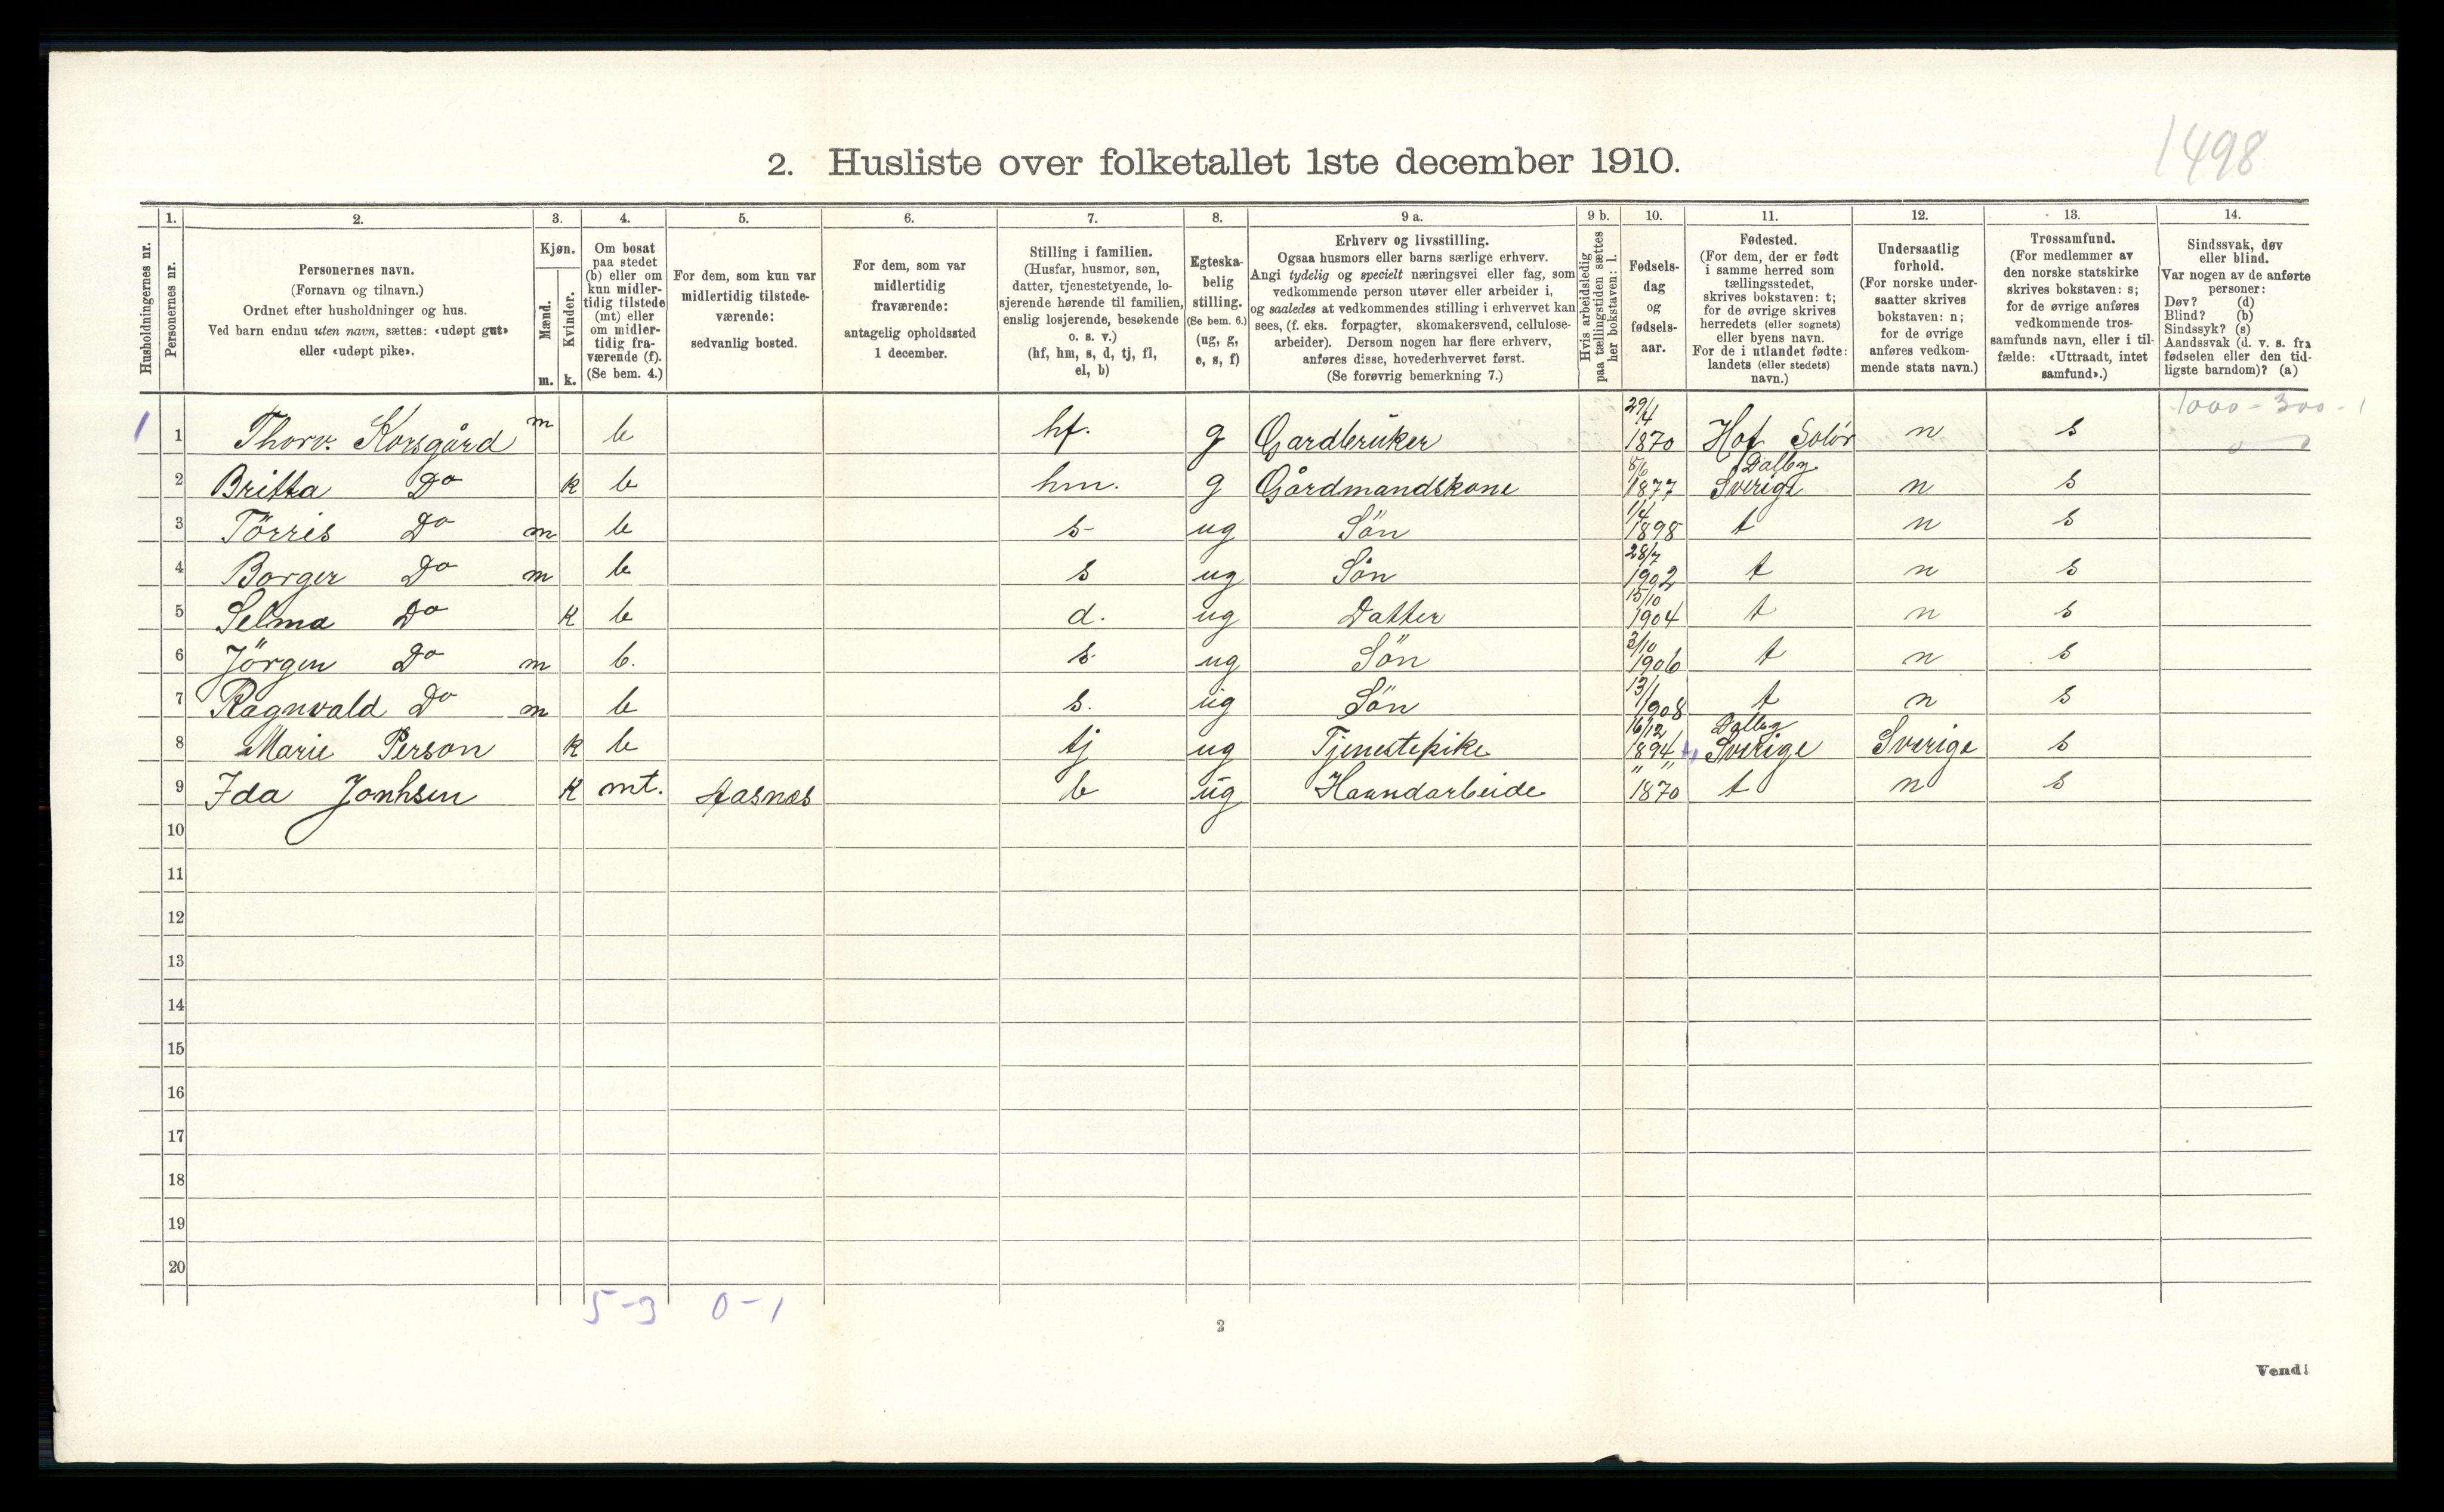 1498
2. Husliste over folketallet 1ste december 1910.
Husholdningernes nr.
1. Personernes nr.
2. Personernes navn. (Fornavn og tilnavn.) Ordnet efter husholdninger og hus. Ved barn endnu uten navn, sættes: «udøpt gut» eller «udøpt pike».
3. Kjøn. Mænd. m. Kvinder. k.
4. Om bosat paa stedet (b) eller om kun midlertidig tilstede (mt) eller om midlertidig fraværende (f). (Se bem. 4.)
5. For dem, som kun var midlertidig tilstedeværende: sedvanlig bosted.
6. For dem, som var midlertidig fraværende: antagelig opholdssted 1 december.
7. Stilling i familien. (Husfar, husmor, søn, datter, tjenestetyende, losjerende hørende til familien, enslig losjerende, besøkende o. s. v.) (hf, hm, s, d, tj, fl, el, b)
8. Egteskabelig stilling. (Se bem. 6.) (ug, g, e, s, f)
9 a. Erhverv og livsstilling. Ogsaa husmors eller barns særlige erhverv. Angi tydelig og specielt næringsvei eller fag, som vedkommende person utøver eller arbeider i, og saaledes at vedkommendes stilling i erhvervet kan sees, (f. eks. forpagter, skomakersvend, cellulosearbeider). Dersom nogen har flere erhverv, anføres disse, hovederhvervet først. (Se forøvrig bemerkning 7.)
9 b. Hvis arbeidsledig paa tællingstiden sættes her bokstaven: l.
10. Fødselsdag og fødselsaar.
11. Fødested. (For dem, der er født i samme herred som tællingsstedet, skrives bokstaven: t; for de øvrige skrives herredets (eller sognets) eller byens navn. For de i utlandet fødte: landets (eller stedets) navn.)
12. Undersaatlig forhold. (For norske undersaatter skrives bokstaven: n; for de øvrige anføres vedkommende stats navn.)
13. Trossamfund. (For medlemmer av den norske statskirke skrives bokstaven: s; for de øvrige anføres vedkommende trossamfunds navn, eller i tilfælde: «Uttraadt, intet samfund».)
14. Sindssvak, døv eller blind. Var nogen av de anførte personer: Døv? (d) Blind? (b) Sindssyk? (s) Aandssvak (d. v. s. fra fødselen eller den tidligste barndom)? (a)
1000 - 300 - 1
0 0
1 1 Thorv. Korsgård m b hf. g Gardbruker 29/4 1870 Hof Solör n s
2 Britta Do k b hm. g Gårdmandskone 8/6 1877 Dalby Sverige n s
3 Törris Do m b s- ug Sön 1/4 1898 t n s
4 Borger Do m b s ug Sön 28/7 1902 t n s
5 Selma Do k b d. ug Datter 15/10 1904 t n s
6 Jörgen Do m b. s ug Sön 3/10 1906 t n s
7 Ragnvald Do m b s. ug Sön 13/1 1908 t n s
8 Marie Person k b tj ug Tjenestepike 16/12 1894 Dalby Sverige Sverige s
9 Ida Jonhsen k mt. Aasnes b ug Haandarbeide " " 1870 t n s
10
11
12
13
14
15
16
17
18
19
20
5-3 0-1
2
Vend!